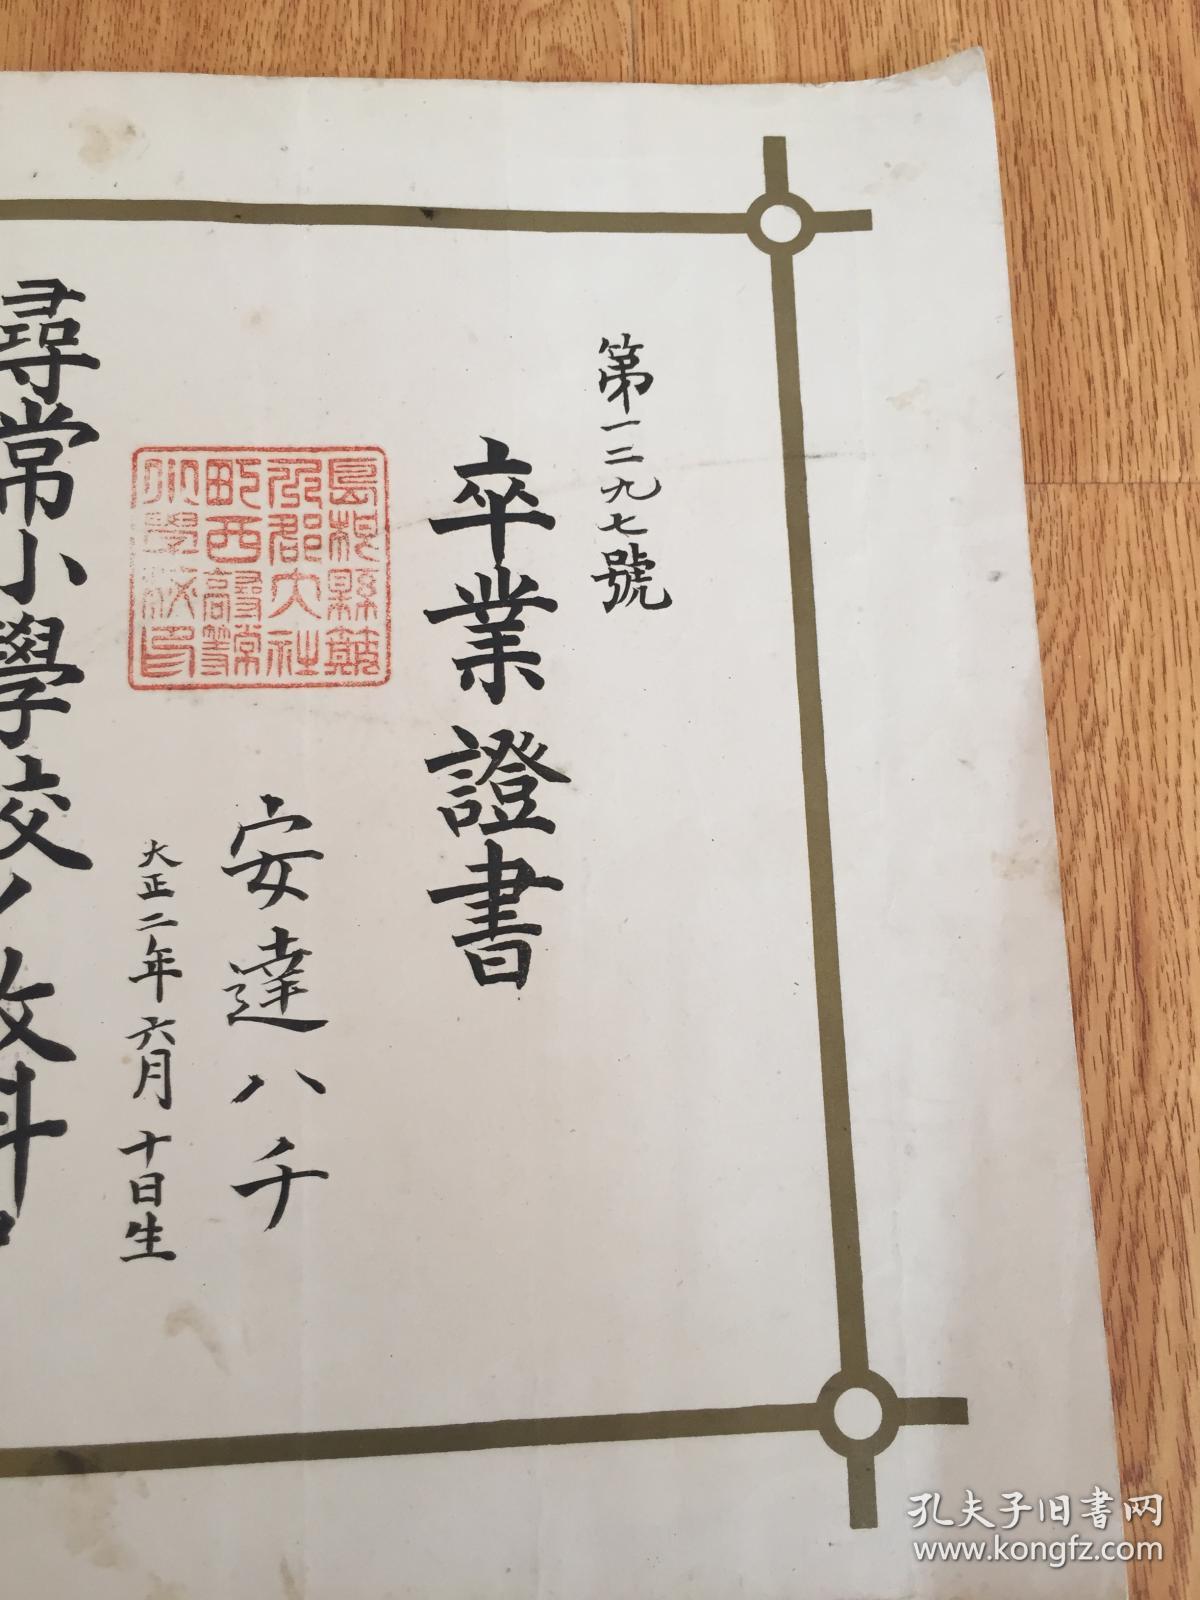 第一二九七號
卒業證書
島根縣簸
川郡大社
町西尋常高等
小學校印
安達八千
大正二年六月十日生
尋常小學校ノ教科
孔夫子旧书网
www.kongfz.com